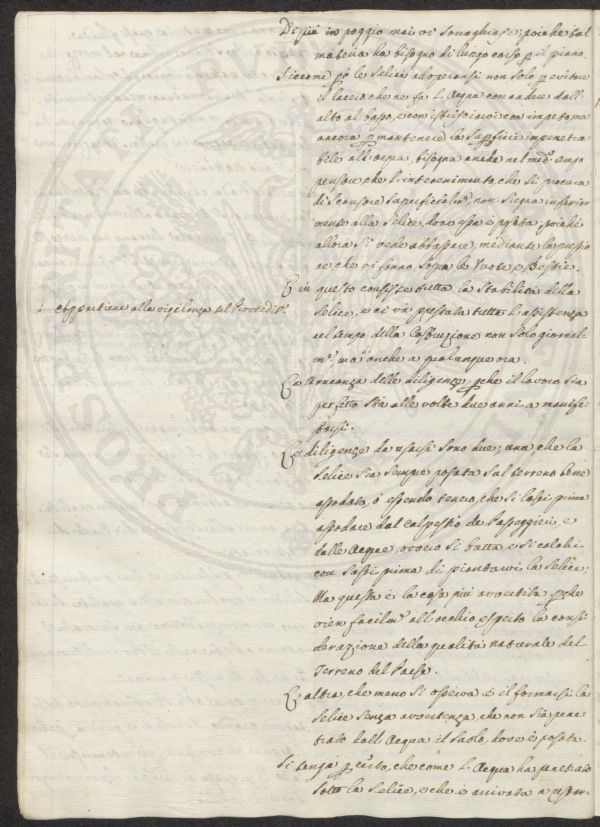 Di più in poggio mai vi sono ghiare; poiché tal
materia ha bisogno di lungo corso p il piano.
Siccome p le Selice adoperansi non solo p evitare
il laccio che ne fa l'Acqua con andare dall'
alto al basso, e con istrisciarvi con impeto ma
ancora p mantenere la Supficie impenetra-
bile all'acqua, bisogna anche nel med.º tempo
pensare, che l'interenimento, che si procura
di scansare superficialm.te, non segua inferior
mente alla Selice, dove essa è posata; poiché
allora si vede abbassare, mediante la pressio
ne che vi fanno sopra le Ruote e Bestie.
E in questo consiste tutta la Stabilità della
e appartiene alla vigilanza del Proveditᵉ.
Selice, e ci va prestata tutta l'assistenza
nel tempo della Costruzione non solo giornal-
m.te, ma anche a qualunque ora.
La mancanza delle diligenze, pche il lavoro sia
perfetto stà alle volte due anni a manife-
starsi.
Le diligenze da usarsi sono due; una che la
Selice sia sempre posata sul terreno bene
assodato, ò essendo tenero, che si lasci prima
assodare dal calpestio de Passeggieri, e
dalle Acque, ovvero si batta, e si calchi
con Sassi prima di piantarvi la Selice;
Ma questa è la cosa più avvertita pche
vien facilm.te all'occhio, e specto la consi
derazione della qualità naturale del
Terreno del Paese.
L'altra, che meno si osserva è il formarsi la
Selice senza avvertenza, che non sia pene
trato dall'Acqua il Suolo, dove è posata.
Si tenga p certo, che come l'Acqua ha penetrato
sotto la Selice, e che è arrivata a